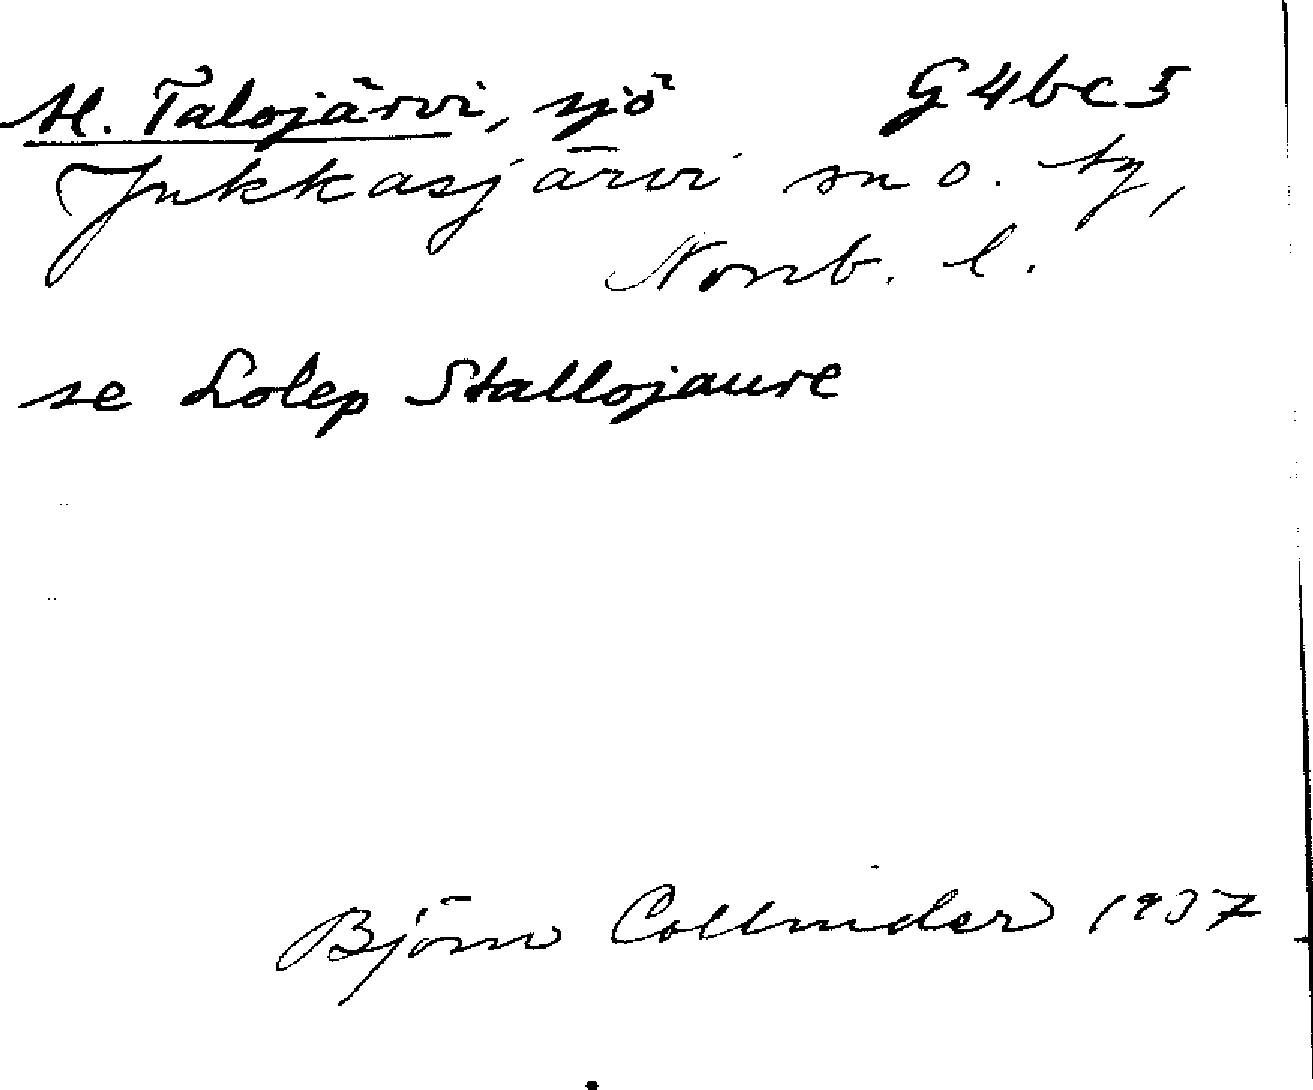 N. Talojärvi, sjö G4bc5
Jukkasjärvi sn o. tg,
Norrb. l.
se Lolep Stallojaure
Björn Collinder 1937